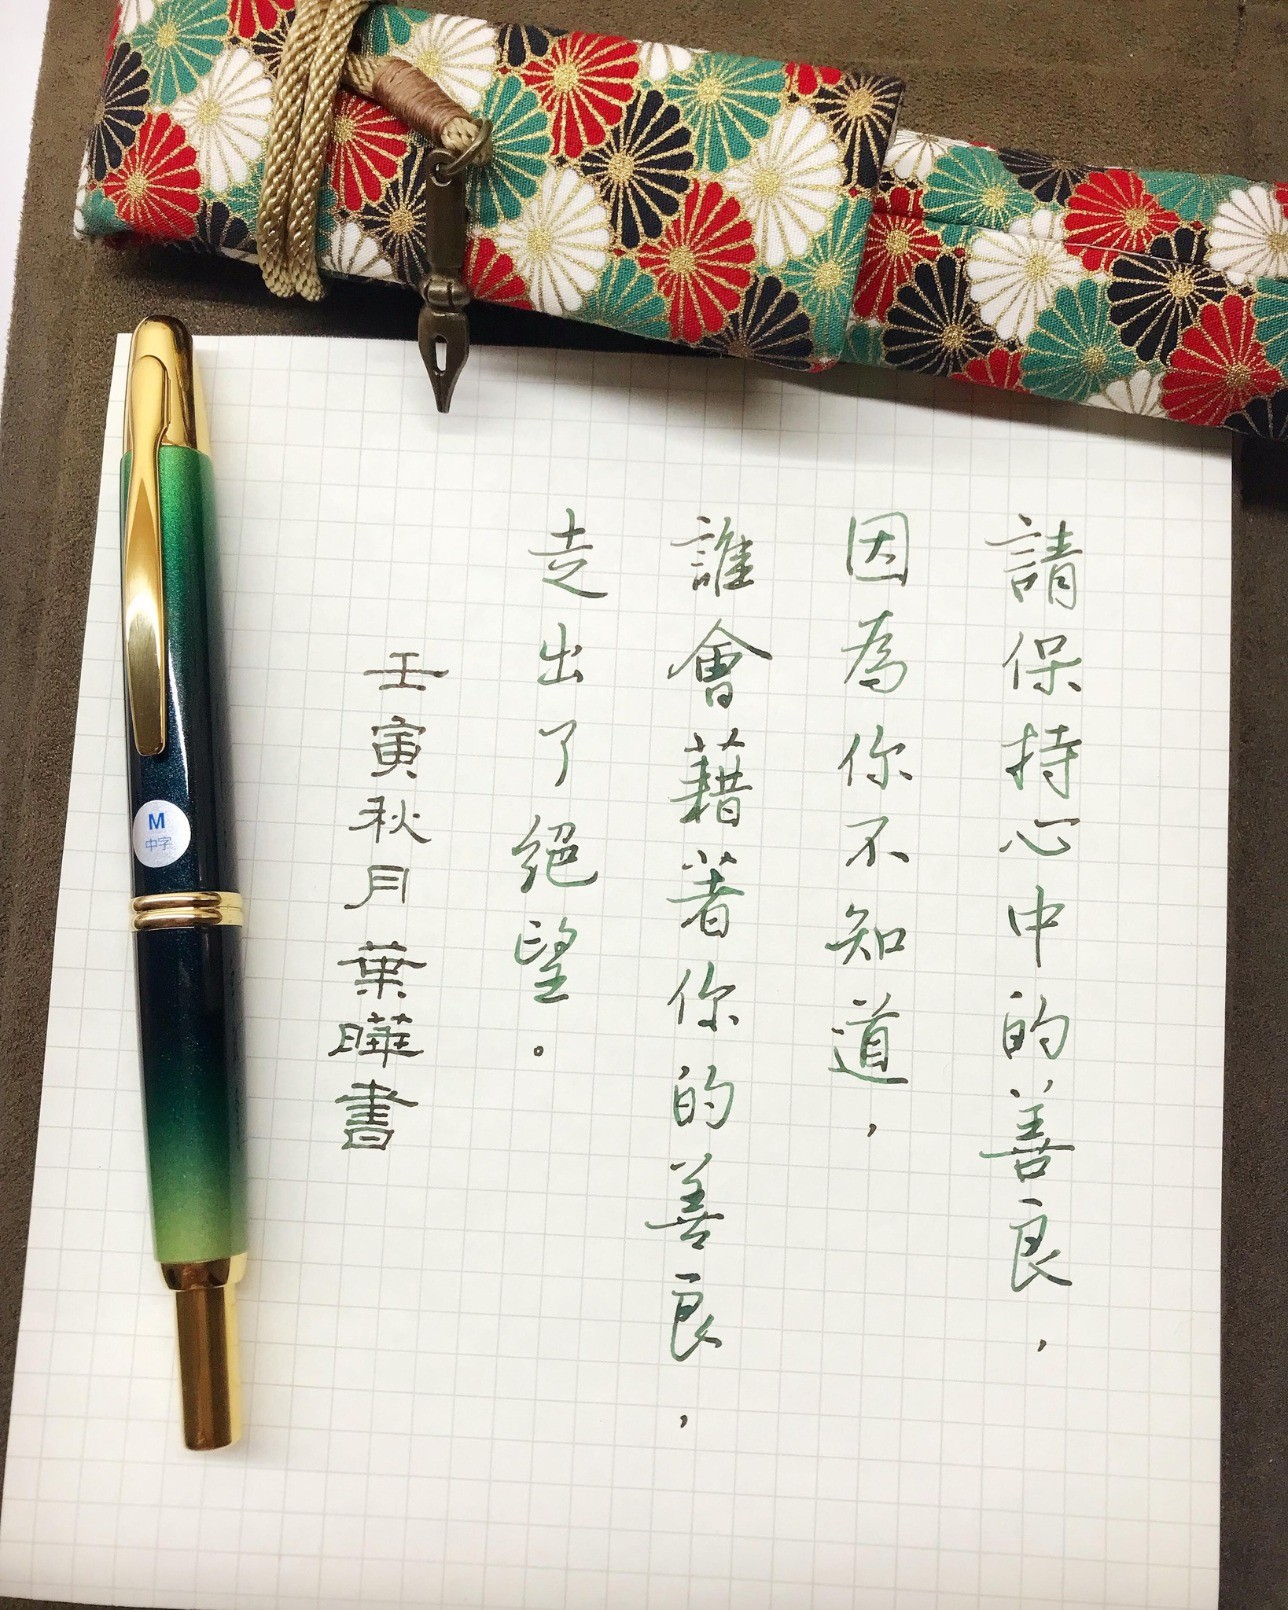 請保持心中的善良，
因為你不知道，
誰會藉著你的善良，
走出了絕望。
壬寅秋月葉曄書
M
中字